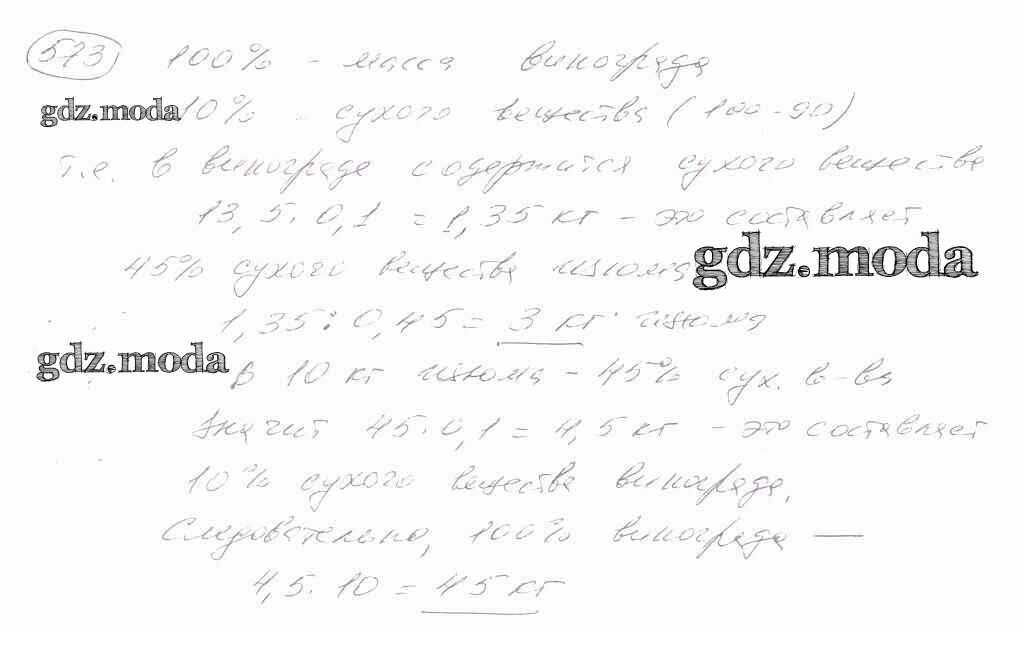 573 100% - масса винограда
gdz.moda 10% - сухого вещества (100-90)
т.е. в винограде содержится сухого вещества
13,5·0,1 = 1,35 кг - это составляет
45% сухого вещества изюма gdz.moda
1,35 : 0,45 = 3 кг изюма
gdz.moda
В 10 кг изюма - 45% сух. в-ва
Значит 45·0,1 = 4,5 кг - это составляет
10% сухого вещества винограда.
Следовательно, 100% винограда —
4,5·10 = 45 кг